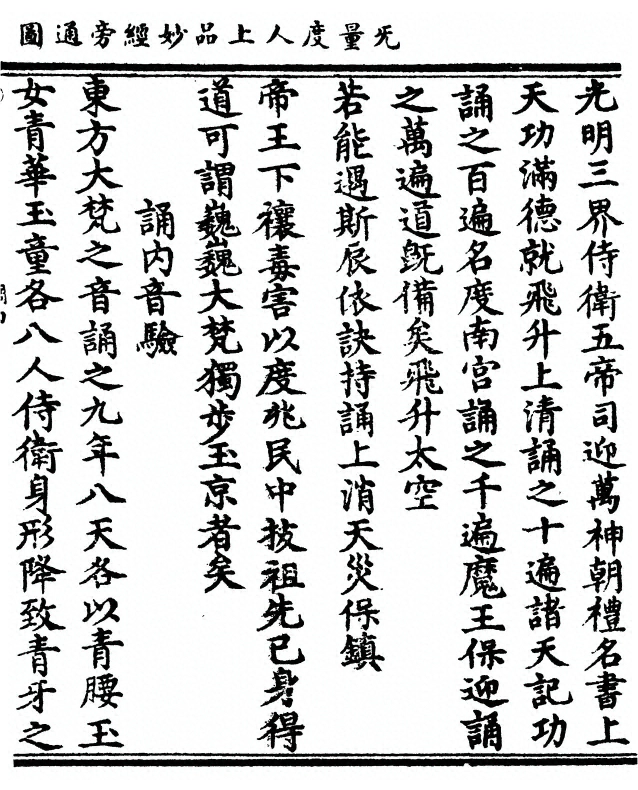 无量度人上品妙經旁通圖
光明三界侍衛五帝司迎萬神朝禮名書上
天功滿德就飛升上清誦之十遍諸天記功
誦之百遍名度南宮誦之千遍魔王保迎誦
之萬遍道既備矣飛升太空
若能遇斯辰依訣持誦上消天災保鎮
帝王下禳毒害以度兆民中拔祖先已身得
道可謂巍巍大梵獨步玉京者矣
誦内音驗
東方大梵之音誦之九年八天各以青腰玉
女青華玉童各八人侍衛身形降致青牙之